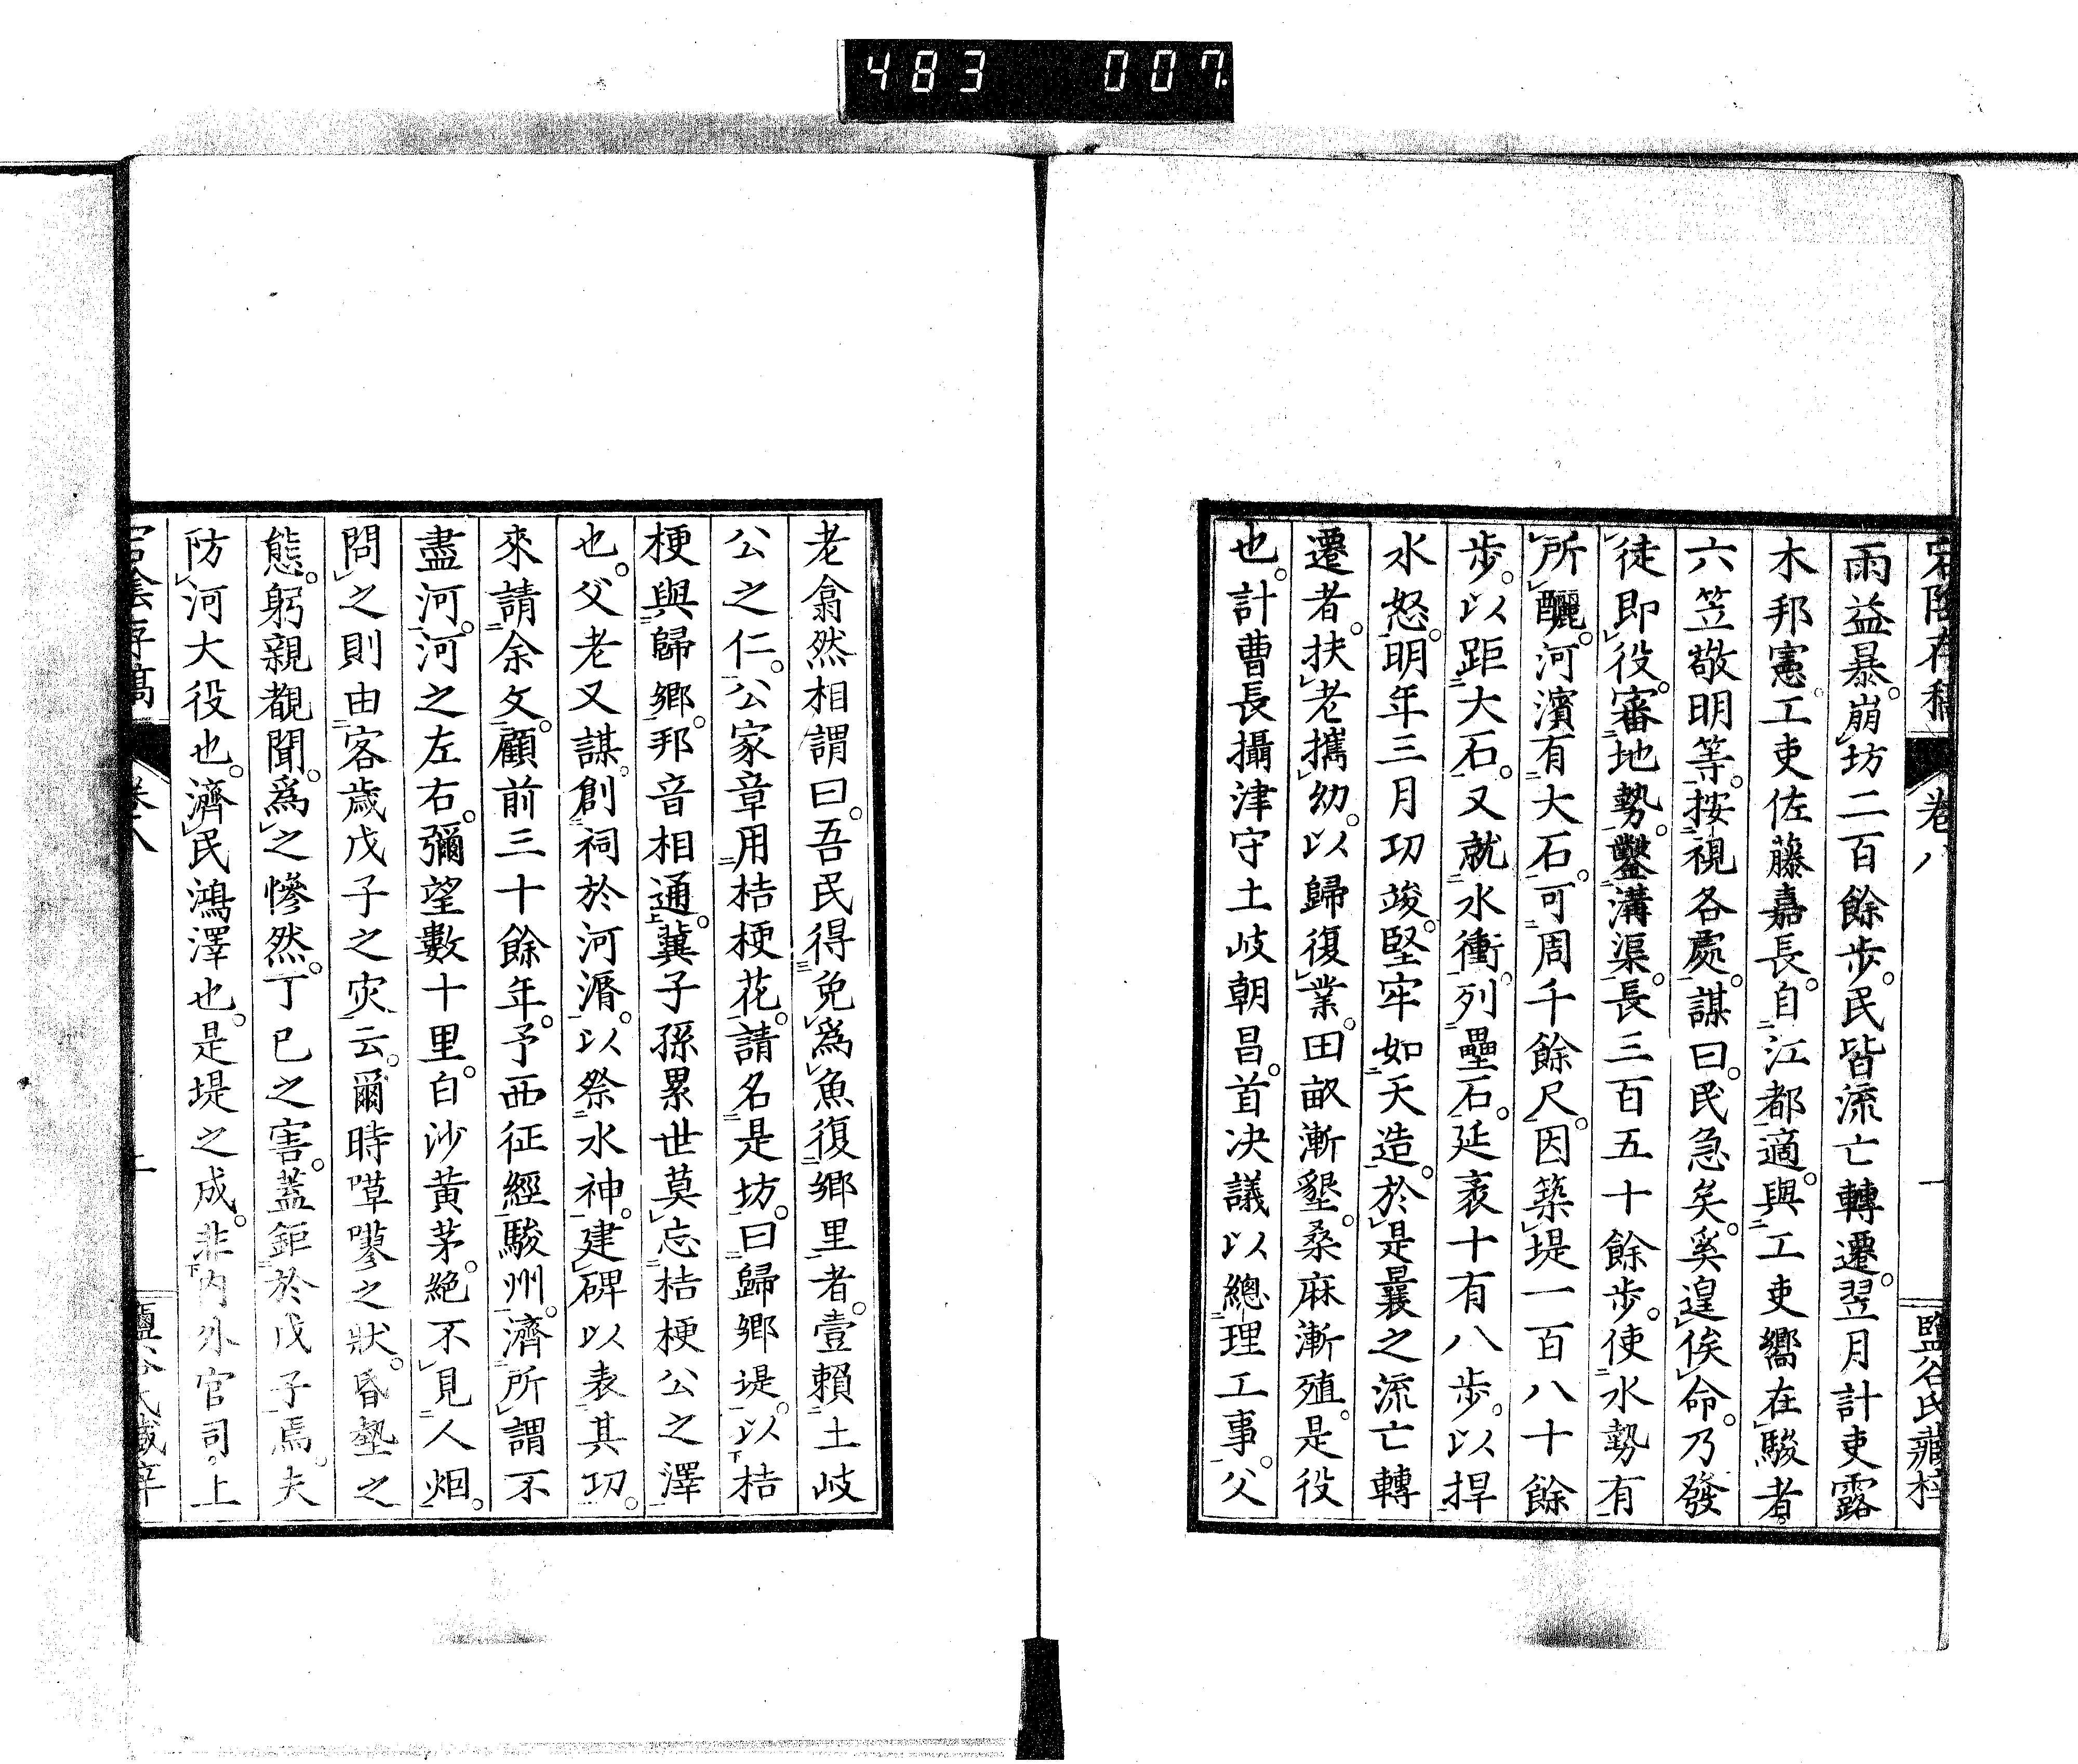 483 007.
宕陰存稿 卷八 一 鹽谷氏藏梓
雨益暴。崩坊二百餘步。民皆流亡轉遷。翌月計吏露
木邦憲。工吏佐藤嘉長。自江都適。與工吏嚮在駿者。
六笠敬明等。按視各處。謀曰。民急矣。奚遑俟命。乃發
徒即役。審地勢。鑿溝渠。長三百五十餘步。使水勢有
所釃。河濱有大石。可周千餘尺。因築堤一百八十餘
步。以距大石。又就水衝。列壘石。延袤十有八步。以捍
水怒。明年三月功竣。堅牢如天造。於是曩之流亡轉
遷者。扶老攜幼。以歸復業。田畝漸墾。桑麻漸殖。是役
也。計曹長攝津守土岐朝昌。首决議以總理工事。父
老翕然相謂曰。吾民得免爲魚復鄉里者。壹賴土岐
公之仁。公家章用桔梗花。請名是坊。曰歸鄉堤。以桔
梗與歸鄉。邦音相通。冀子孫累世莫忘桔梗公之澤
也。父老又謀。創祠於河漘。以祭水神。建碑以表其功。
來請余文。顧前三十餘年。予西征經駿州。濟所謂不
盡河。河之左右。彌望數十里。白沙黃茅。絕不見人烟。
問之則由客歲戊子之灾云。爾時嘩嘐之狀。昏墊之
態。躬親覩聞。爲之慘然。丁巳之害。蓋鉅於戊子焉。夫
防河大役也。濟民鴻澤也。是堤之成。非內外官司。上
宕陰存稿 卷八 鹽谷氏藏梓